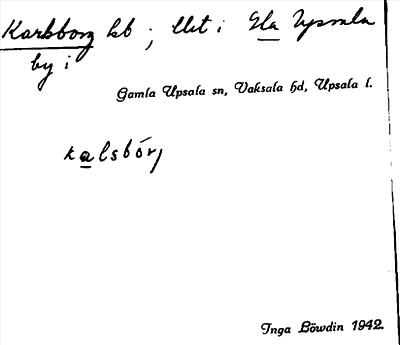 Karlsborg lht ; Utst i Gla Upsala
by i
Gamla Upsala sn, Vaksala hd, Upsala l.
kalsbórj
Inga Löwdin 1942.